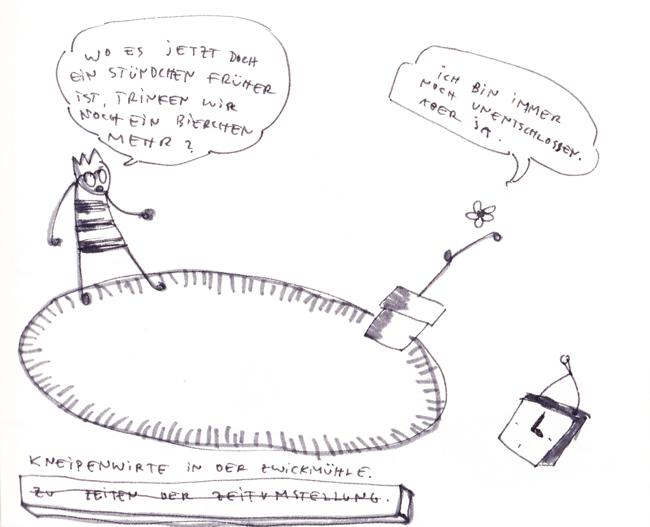 WO ES JETZT DOCH
EIN STÜNDCHEN FRÜHER
IST, TRINKEN WIR
NOCH EIN BIERCHEN
MEHR?
ICH BIN IMMER
NOCH UNENTSCHLOSSEN.
ABER JA.
KNEIPENWIRTE IN DER ZWICKMÜHLE.
ZU ZEITEN DER ZEITUMSTELLUNG.